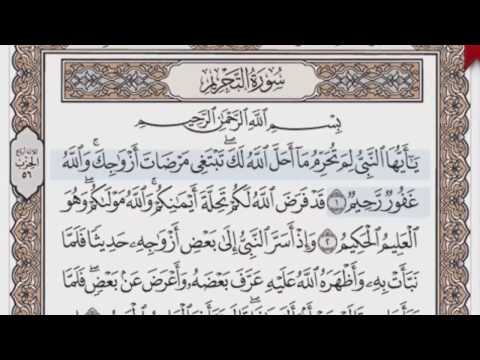 سُورَةُ التَّحْرِيمِ
بِسْمِ اللَّهِ الرَّحْمَٰنِ الرَّحِيمِ
يَٰٓأَيُّهَا ٱلنَّبِىُّ لِمَ تُحَرِّمُ مَآ أَحَلَّ ٱللَّهُ لَكَ ۖ تَبْتَغِى مَرْضَاتَ أَزْوَٰجِكَ ۚ وَٱللَّهُ
غَفُورٌ رَّحِيمٌ ١ قَدْ فَرَضَ ٱللَّهُ لَكُمْ تَحِلَّةَ أَيْمَٰنِكُمْ ۚ وَٱللَّهُ مَوْلَىٰكُمْ ۖ وَهُوَ
ٱلْعَلِيمُ ٱلْحَكِيمُ ٢ وَإِذْ أَسَرَّ ٱلنَّبِىُّ إِلَىٰ بَعْضِ أَزْوَٰجِهِۦ حَدِيثًا فَلَمَّا
نَبَّأَتْ بِهِۦ وَأَظْهَرَهُ ٱللَّهُ عَلَيْهِ عَرَّفَ بَعْضَهُۥ وَأَعْرَضَ عَنۢ بَعْضٍ ۖ فَلَمَّا
ثلاثة أرباع
الحزب
٥٦